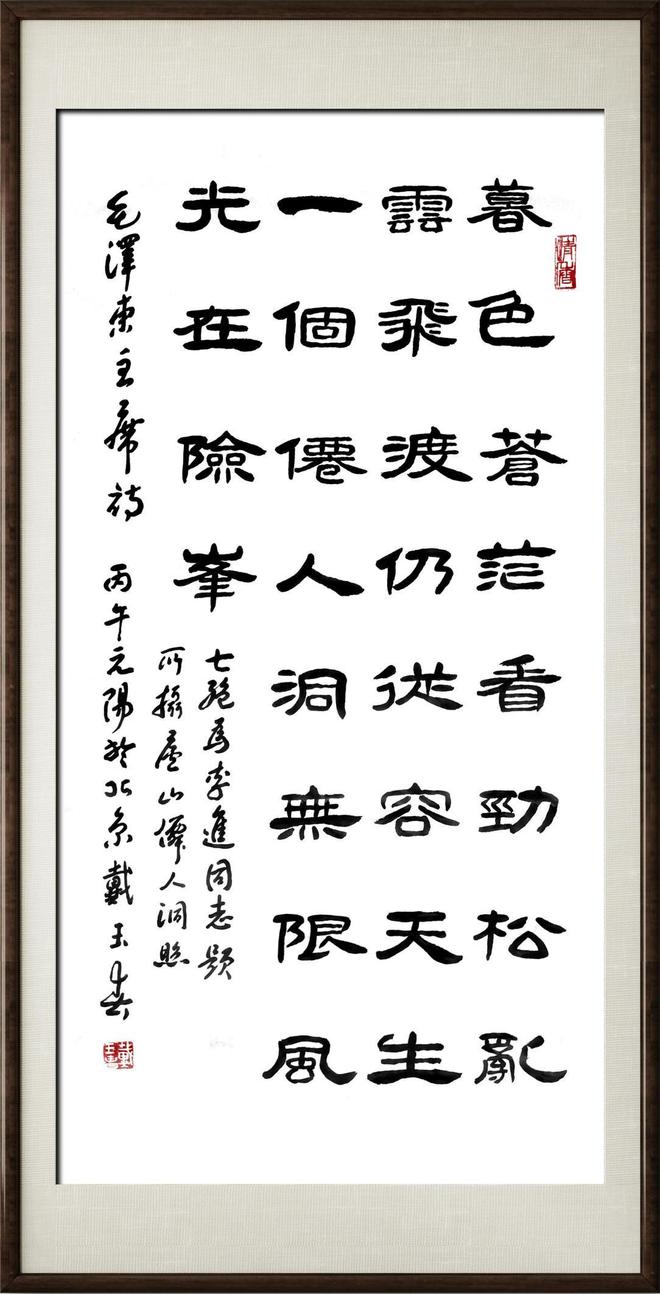 暮色蒼茫看勁松亂
雲飛渡仍從容天生
一個僊人洞無限風
光在險峯
七絕為李進同志題
所攝廬山僊人洞照
毛澤東主席詩 丙午元陽於北京戴玉春